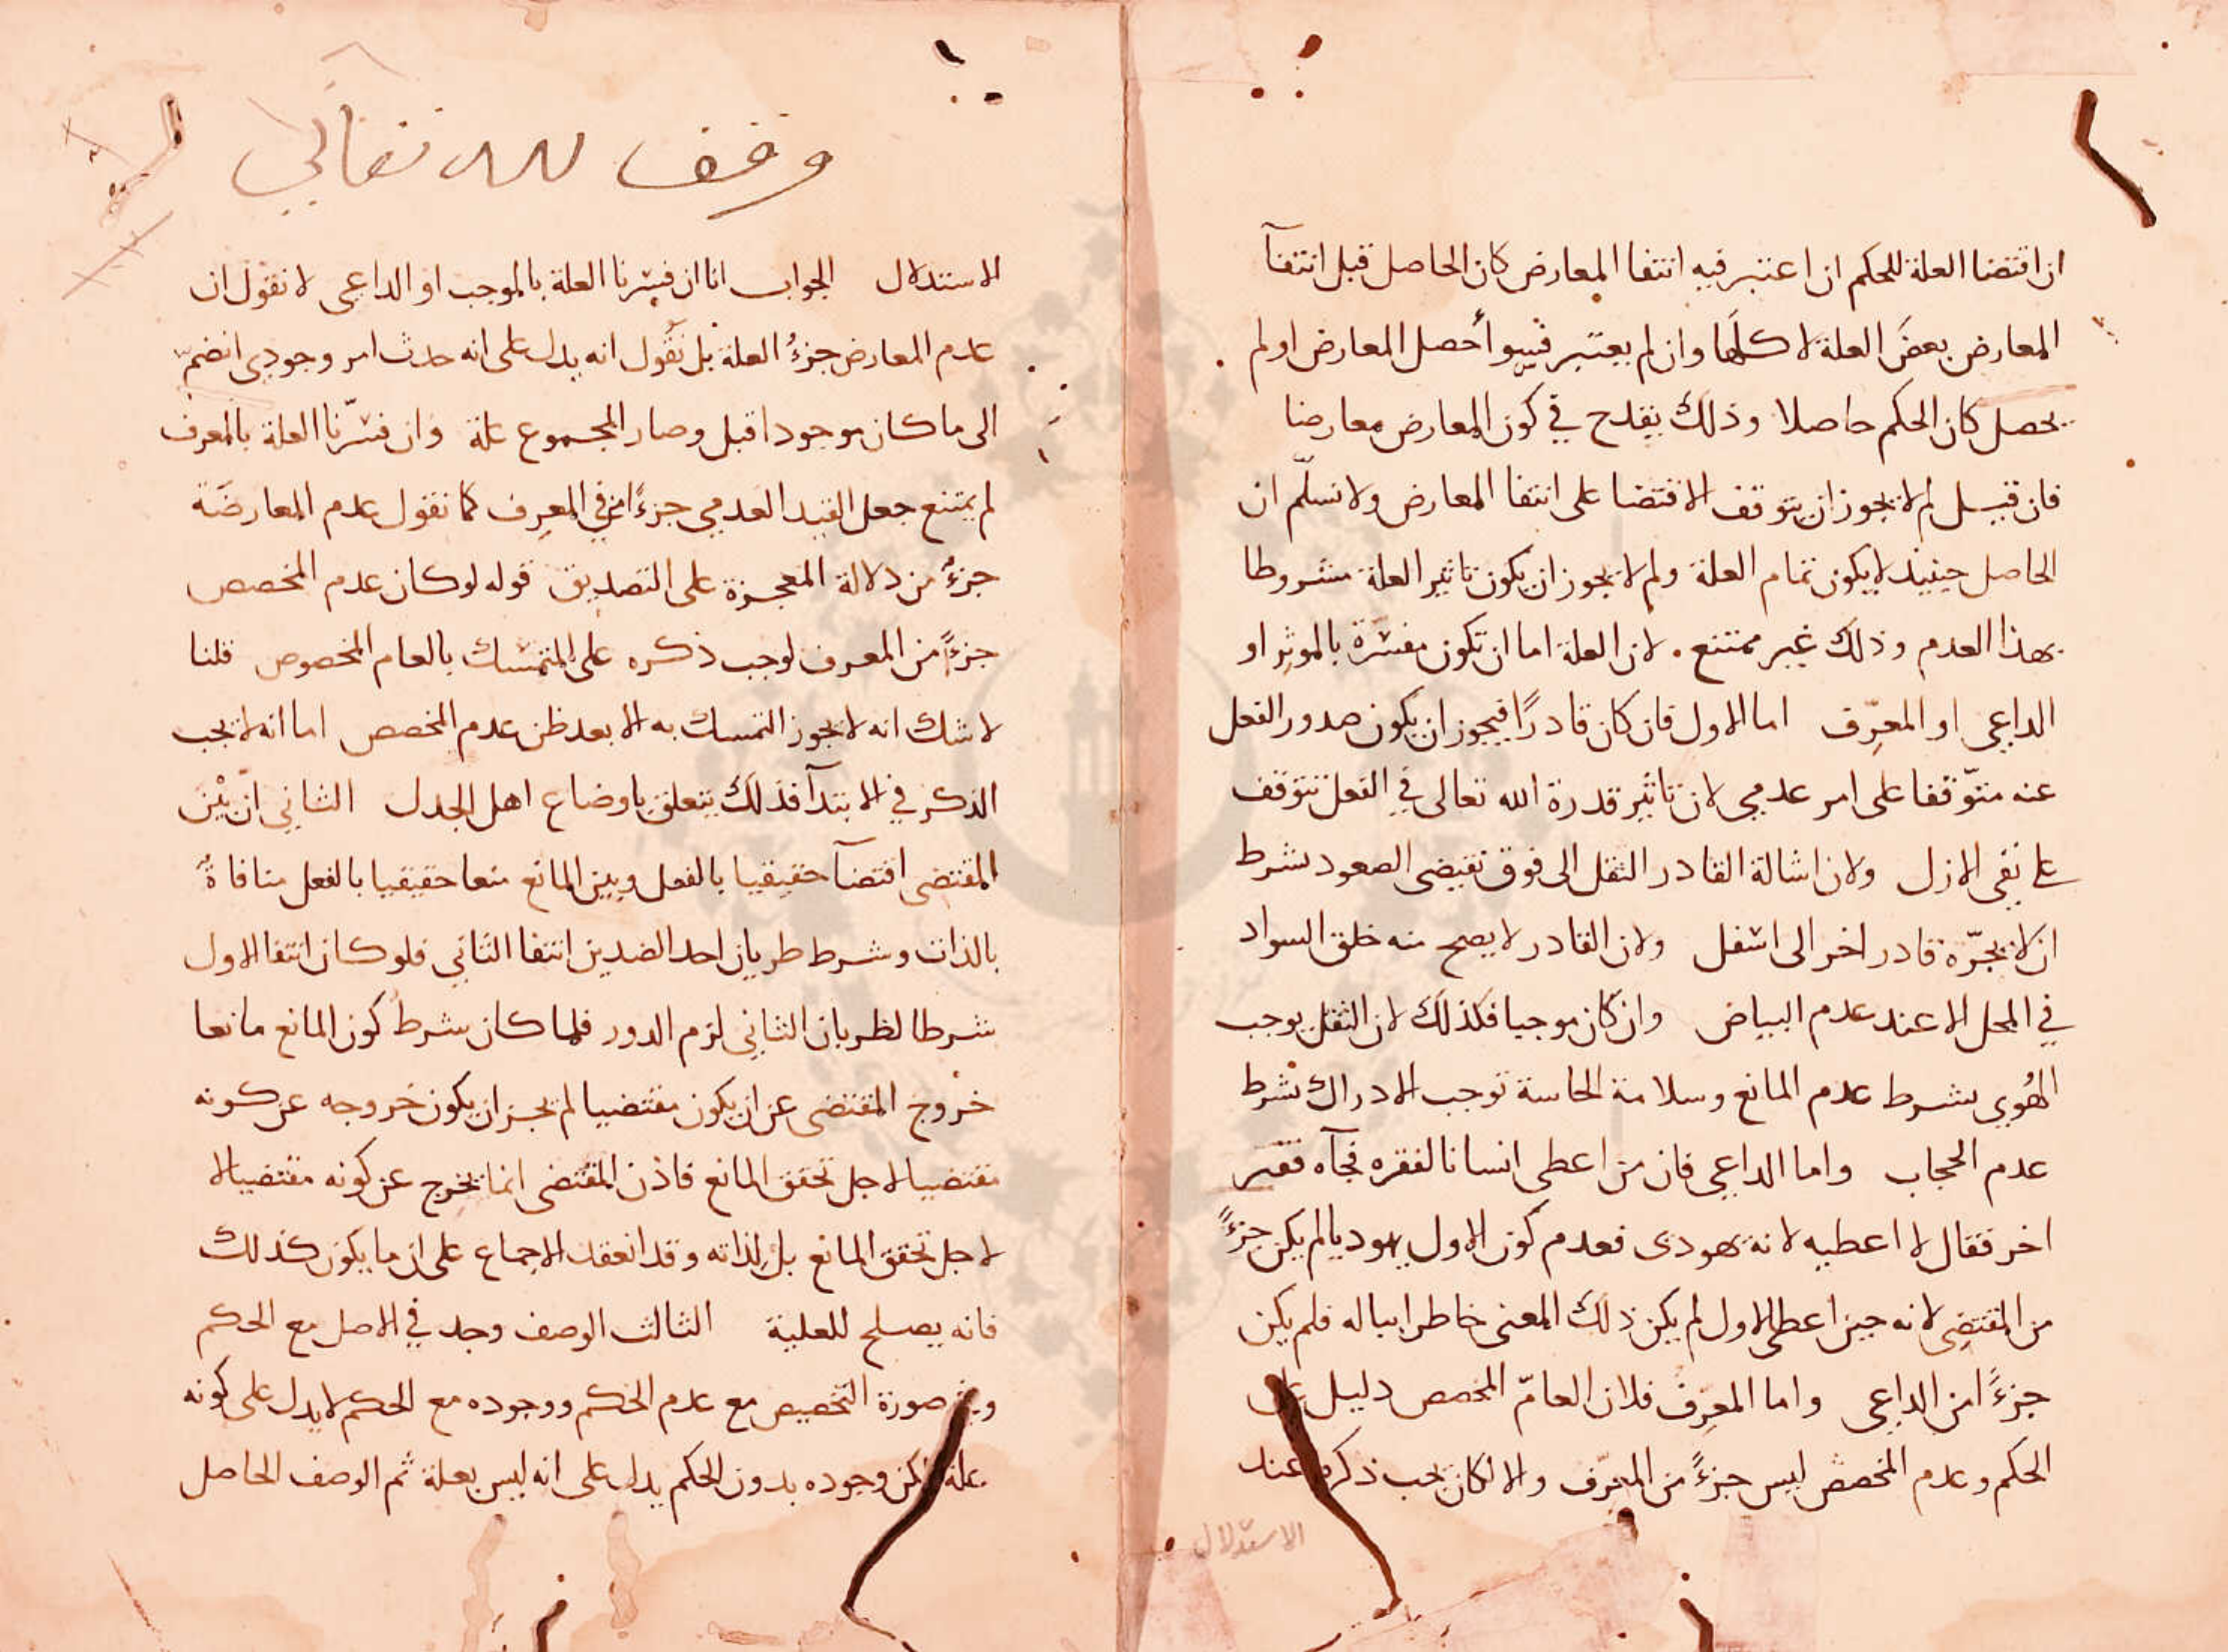 ان اقتضا العلة للحكم ان اعتبر فيه انتفا المعارض كان الحاصل قبل انتفآ
المعارض بعضَ العلة لا كلَّها وان لم يعتبر فسوآ أحصل المعارض او لم
يحصل كان الحكم حاصلا وذلك يقدح في كون المعارض معارضا
فان قيل لم لا يجوز ان يتوقف الاقتضا على انتفا المعارض ولا نسلّم ان
الحاصل حينيذ لا يكون تمام العلة ولم لا يجوز ان يكون تاثير العلة مشروطا
بهذا العدم وذلك غير ممتنع . لان العلة اما ان تكون مفسّرة بالموثِر او
الداعي او المعرِّف اما الاول فان كان قادرًا فيجوز ان يكون صدور الفعل
عنه متوّقفا على امر عدمي لان تاثير قدرة الله تعالى في الفعل تتوقف
على نفي الازل ولان اشالة القادر الثقل الى فوق تقتضي الصعود بشرط
ان لا يجرّه قادر اخر الى اسفل ولان القادر لا يصح منه خلق السواد
في المحل الا عند عدم البياض وان كان موجبا فكذلك لان الثقل يوجب
الهُوِي بشرط عدم المانع وسلامة الحاسة توجب الادراك بشرط
عدم الحجاب واما الداعي فان من اعطى انسانا لفقره فجآه فقير
اخر فقال لا اعطيه لانه يهودى فعدم كون الاول يهوديا لم يكن جزءًا
من المقتضِي لانه حين اعطى الاول لم يكن ذلك المعنى خاطرا بباله فلم يكن
جزءًا من الداعي واما المعرِّف فلان العامّ المخصص دليل على
الحكم وعدم المخصص ليس جزءًا من المعرّف والا لكان يجب ذكره عند
الاستدلال
وقف لله تعالى
الاستدلال الجواب انا ان فسّرنا العلة بالموجب او الداعي لا نقول ان
عدم المعارض جزءُ العلة بل نقُول انه يدل على انه حدث امر وجودي انضمّ
الى ما كان موجودا قبل وصار المجموع علة وان فسّرنا العلة بالمعرف
لم يمتنع جعل القيد العدمي جزءًا من المعرِف كما نقول عدم المعارضَة
جزءٌ من دلالة المعجزة على التصديق قوله لو كان عدم المخصص
جزءًا من المعرف لوجب ذكره على المتمسك بالعام المخصوص قلنا
لا شك انه لا يجوز التمسك به الا بعد ظن عدم المخصص اما انه لا يجب
الذكر في الابتدآ فذلك يتعلق باوضاع اهل الجدل الثاني ان بيْن
المقتضي اقتضآ حقيقيا بالفعل وبين المانع منعا حقيقيا بالفعل منافاةً
بالذات وشرط طريان احد الضدين انتفا الثاني فلو كان انتفا الاول
شرطا لطريان الثاني لزم الدور فلما كان شرط كون المانع مانعا
خروج المقتضى عن ان يكون مقتضيا لم يجز ان يكون خروجه عن كونه
مقتضيا لاجل تحقق المانع فاذن المقتضى انما يخرج عن كونه مقتضيا لا
لاجل تحقق المانع بل لِذاته وقد انعقد الاجماع على ان ما يكون كذلك
فانه يصلح للعلية الثالث الوصف وجد في الاصل مع الحكم
وفي صورة التخصيص مع عدم الحكم ووجوده مع الحكم لا يدل على كونه
علة لكن وجوده بدون الحكم يدل على انه ليس بعلة ثم الوصف الحاصل